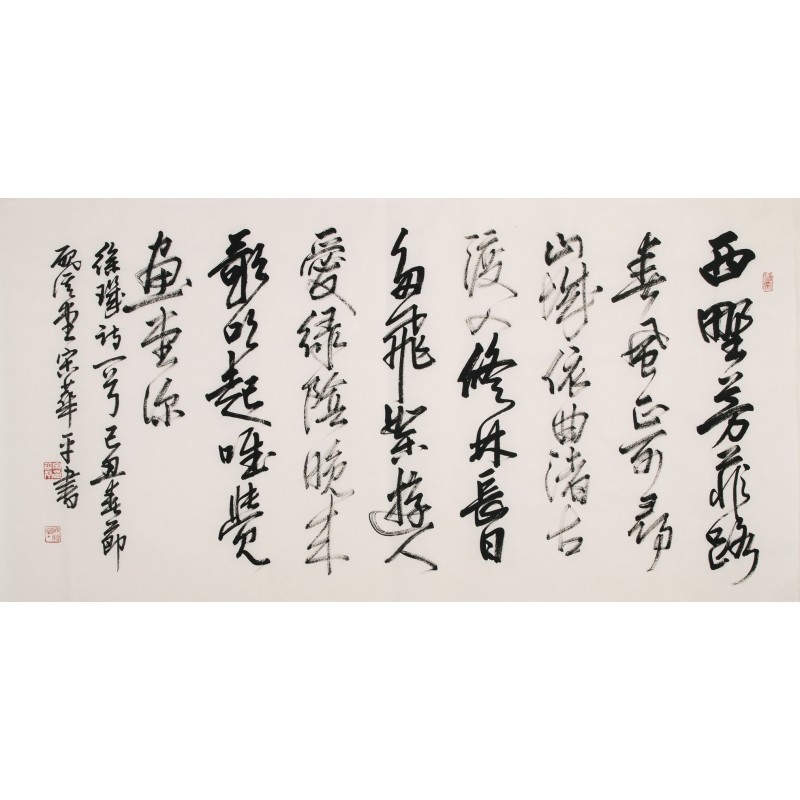 西野芳菲路
春風正可尋
山城依曲渚古
渡入修林長日
多飛絮遊人
愛綠陰晚來
歌吹起唯覺
畫堂深
徐璣詩一首己丑春節
堂宋華平書